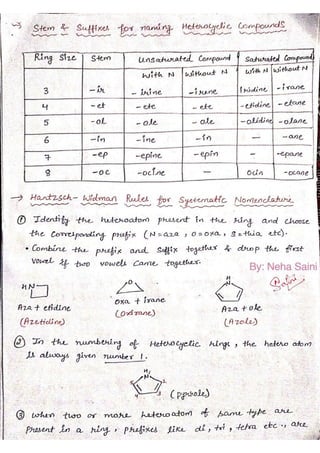 → Stem & Suffixes for naming Heterocyclic Compounds
Ring Size Stem Unsaturated Compound Saturated Compound
With N Without N With N Without N
3 -ir -irine -irene iridine -irane
4 -et -ete -ete -etidine -etane
5 -ol -ole -ole -olidine -olane
6 -in -ine -in — -ane
7 -ep -epine -epin — -epane
8 -oc -ocine — ocin -ocane
→ Hantzsch-Widman Rules for Systematic Nomenclature
① Identify the heteroatom present in the ring and choose
the corresponding prefix (N=aza, O=oxa, S=thia etc).
• Combine the prefix and suffix together & drop the first
vowel if two vowels came together.
By: Neha Saini
Saini
HN
O
H
N
Aza + etidine
oxa + irane
Aza + ole
(Azetidine)
(oxirane)
(Azole)
② In the numbering of Heterocyclic rings, the hetero atom
is always given number 1.
H
N
1
(pyrrole)
③ When two or more heteroatom of same type are
present in a ring, prefixes like di, tri, tetra etc., are